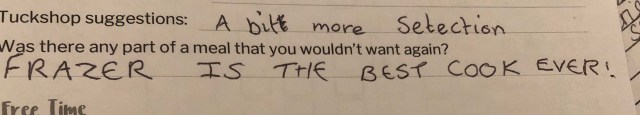 Tuckshop suggestions: A bitt more Selection
Was there any part of a meal that you wouldn't want again?
FRAZER IS THE BEST COOK EVER!
Free Time